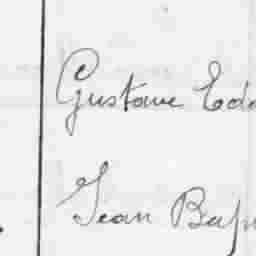 Gustave Edo
Jean Bap